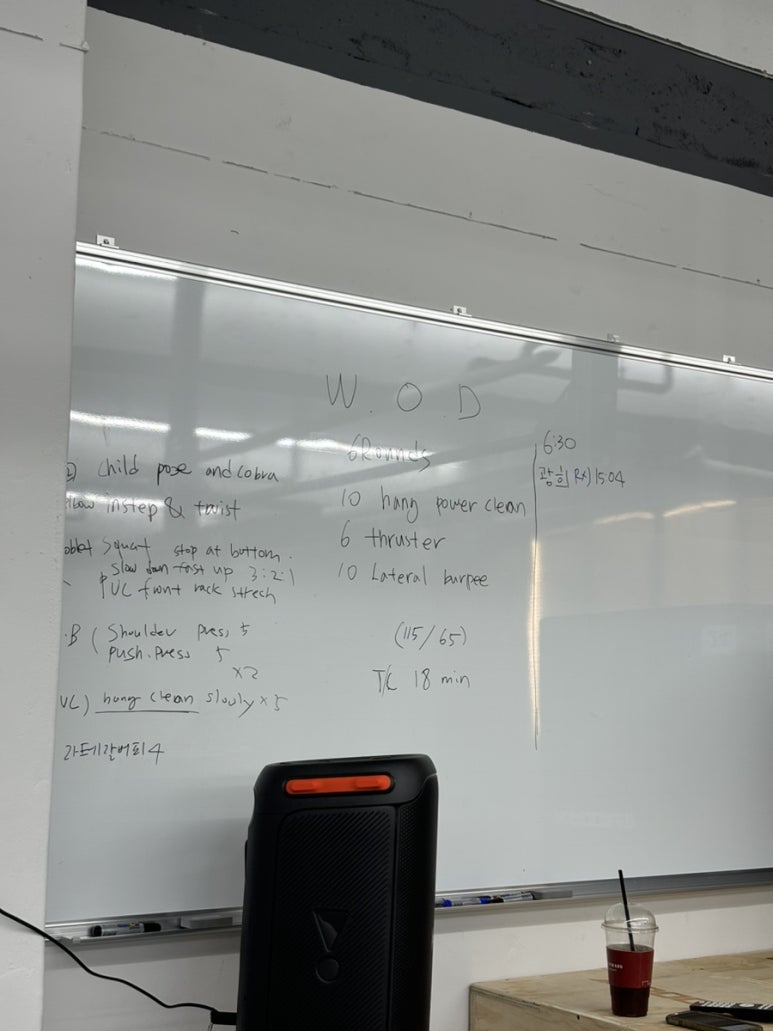 W.O.D
child pose and cobra
instep & twist
squat stop at bottom.
slow down fast up 3:2:1
PVC front rack strech
B ( Shoulder press 5
push.press 5
x2
hang clean slowly x 5
6 Rounds
10 hang power clean
6 thruster
10 Lateral burpee
(115/65)
T/C 18 min
6:30
광희 Rx) 15:04